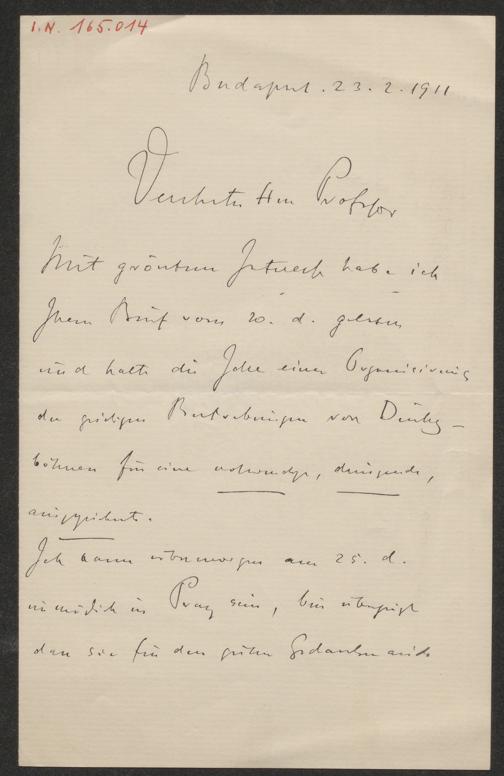 I.N. 165.014
Budapest. 23.2.1911
Verehrter Herr Professor
Mit grösstem Interesse habe ich
Ihren Brief vom 20. d. gelesen
und halte die Idee einer Organisirung
der geistigen Bestrebungen von Deutsch-
böhmen für eine notwendige, dringende,
ausgezeichnete.
Ich kann übermorgen am 25. d.
unmöglich in Prag sein, bin überzeugt
dass sie für den guten Gedanken auch